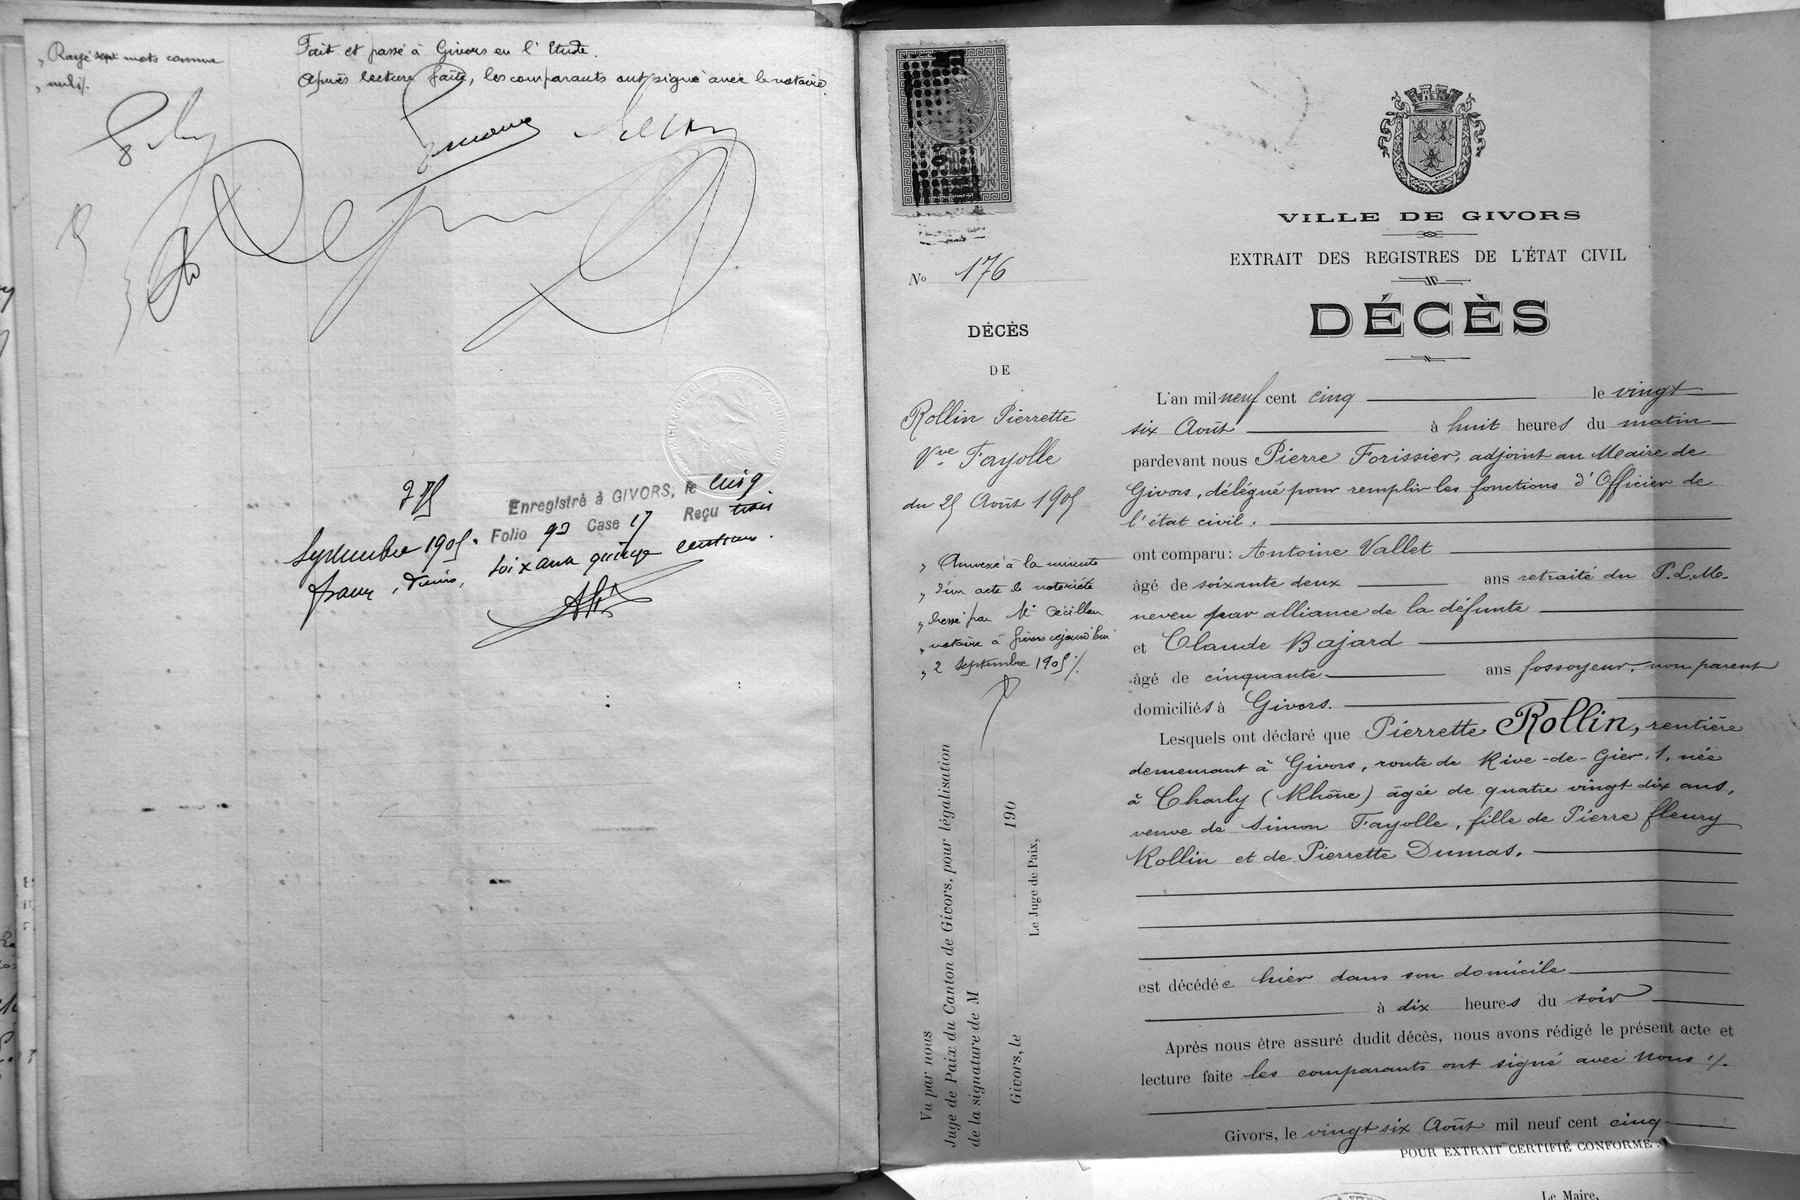 „ Rayé sept mots comme
„ nuls %.
Fait et passé à Givors en l'Etude.
Après lecture faite, les comparants ont signé avec le notaire.
Enregistré à GIVORS, le cinq
Septembre 1905. Folio 92 Case 17 Reçu trois
francs, soixante quinze centimes.
Nº 176
DÉCÈS
DE
Rollin Pierrette
Vve Fayolle
du 25 Août 1905
„ Annexé à la minute
„ d'un acte de notoriété
„ dressé par Me Cécillon
„ notaire à Givors cejourd'hui
„ 2 Septembre 1905 %.
Vu par nous
Juge de Paix du Canton de Givors, pour légalisation
de la signature de M
Givors, le 190
Le Juge de Paix,
VILLE DE GIVORS
EXTRAIT DES REGISTRES DE L'ÉTAT CIVIL
DÉCÈS
L'an mil neuf cent cinq le vingt
six Août à huit heures du matin
pardevant nous Pierre Forissier, adjoint au Maire de
Givors, délégué pour remplir les fonctions d'Officier de
l'état civil.
ont comparu: Antoine Vallet
âgé de soixante deux ans retraité du P.L.M.
neveu par alliance de la défunte
et Claude Bajard
âgé de cinquante ans fossoyeur, non parent
domiciliés à Givors.
Lesquels ont déclaré que Pierrette Rollin, rentière
demeurant à Givors, route de Rive-de-Gier, 1, née
à Charly (Rhône) âgée de quatre vingt dix ans,
veuve de Simon Fayolle, fille de Pierre fleury
Rollin et de Pierrette Dumas.
est décédée hier dans son domicile
à dix heures du soir
Après nous être assuré dudit décès, nous avons rédigé le présent acte et
lecture faite les comparants ont signé avec nous %.
Givors, le vingt six Août mil neuf cent cinq
POUR EXTRAIT CERTIFIÉ CONFORME:
Le Maire,